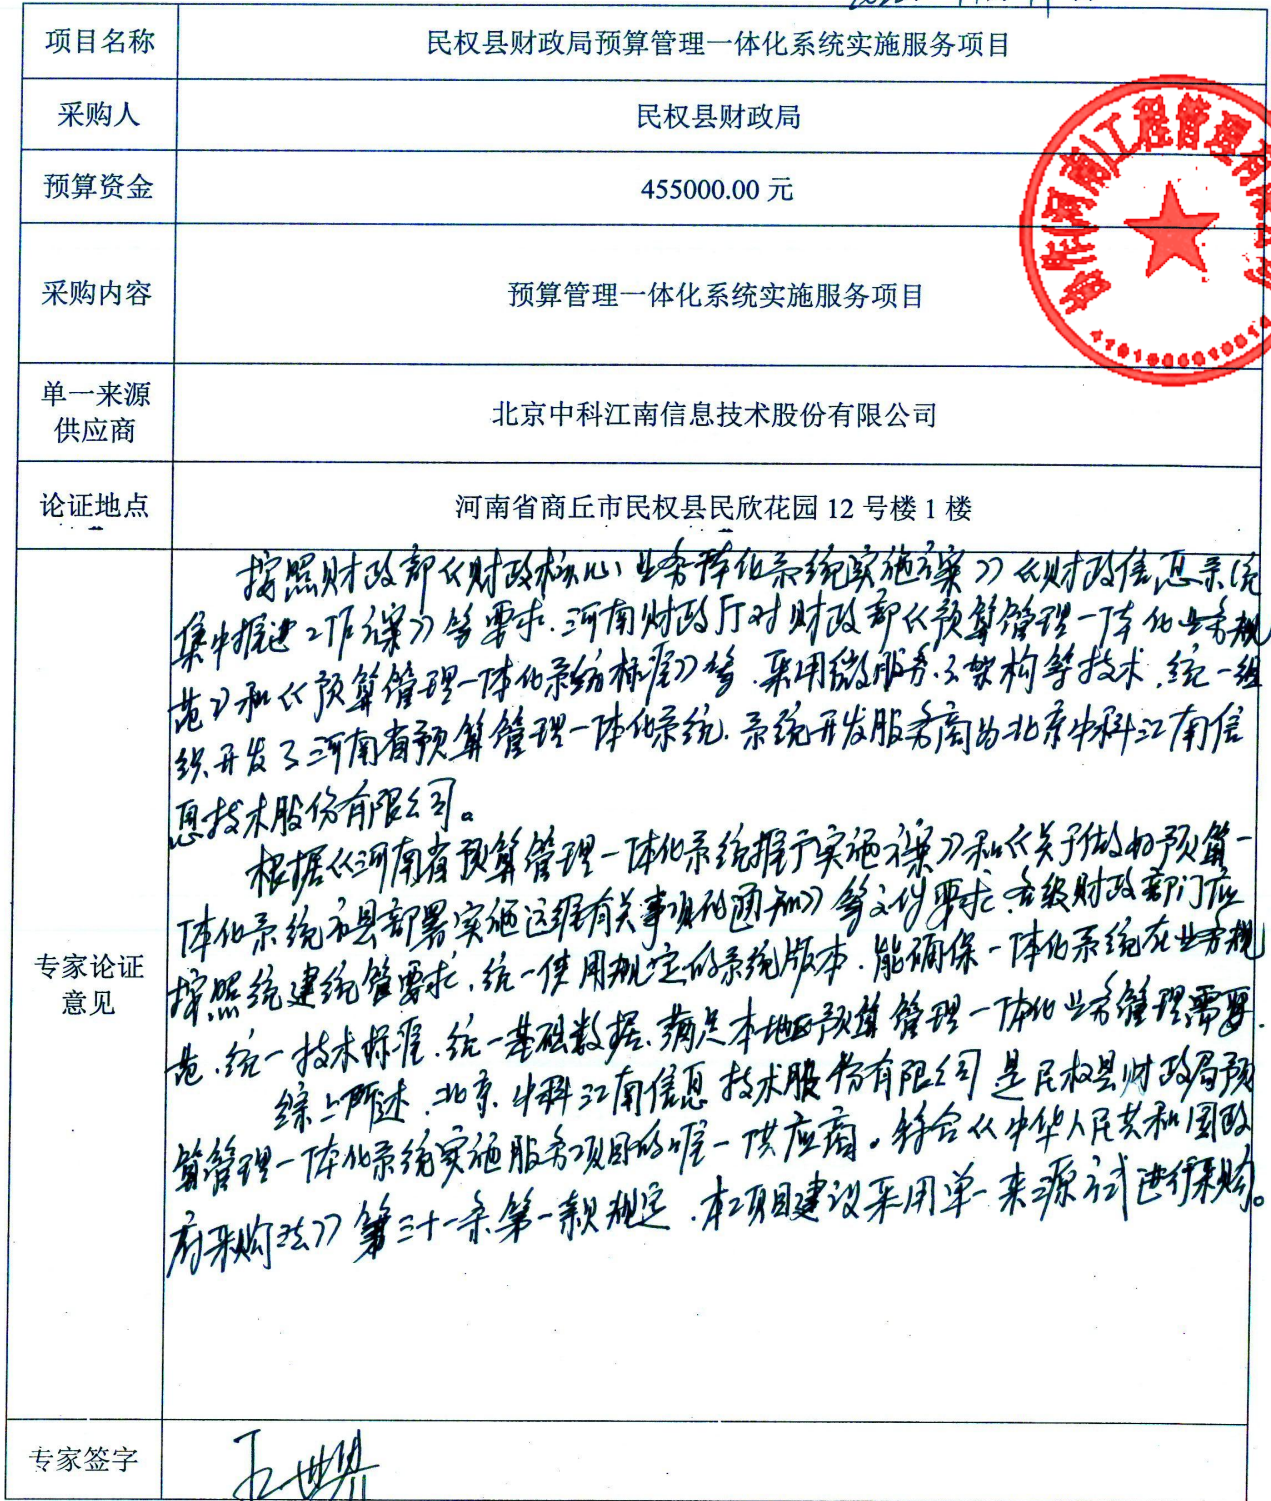 项目名称
民权县财政局预算管理一体化系统实施服务项目
采购人
民权县财政局
预算资金
455000.00 元
采购内容
预算管理一体化系统实施服务项目
单一来源
供应商
北京中科江南信息技术股份有限公司
论证地点
河南省商丘市民权县民欣花园 12 号楼 1 楼
专家论证
意见
按照财政部《财政核心业务一体化系统实施方案》《财政信息系统
集中推进工作方案》等要求.河南财政厅对财政部《预算管理一体化业务规
范》和《预算管理一体化系统标准》等.采用微服务.云架构等技术.统一组
织开发了河南省预算管理一体化系统.系统开发服务商为北京中科江南信
息技术股份有限公司。
根据《河南省预算管理一体化系统推广实施方案》和《关于做好预算一
体化系统市县部署实施运维有关事项的通知》等文件要求.各级财政部门应
按照统建统管要求.统一使用规定的系统版本.能确保一体化系统在业务规
范.统一技术标准.统一基础数据.满足本地区预算管理一体化业务管理需要.
综上所述.北京中科江南信息技术股份有限公司是民权县财政局预
算管理一体化系统实施服务项目的唯一供应商。符合《中华人民共和国政
府采购法》第三十一条第一款规定.本项目建议采用单一来源方式进行采购。
专家签字
工程管理有限